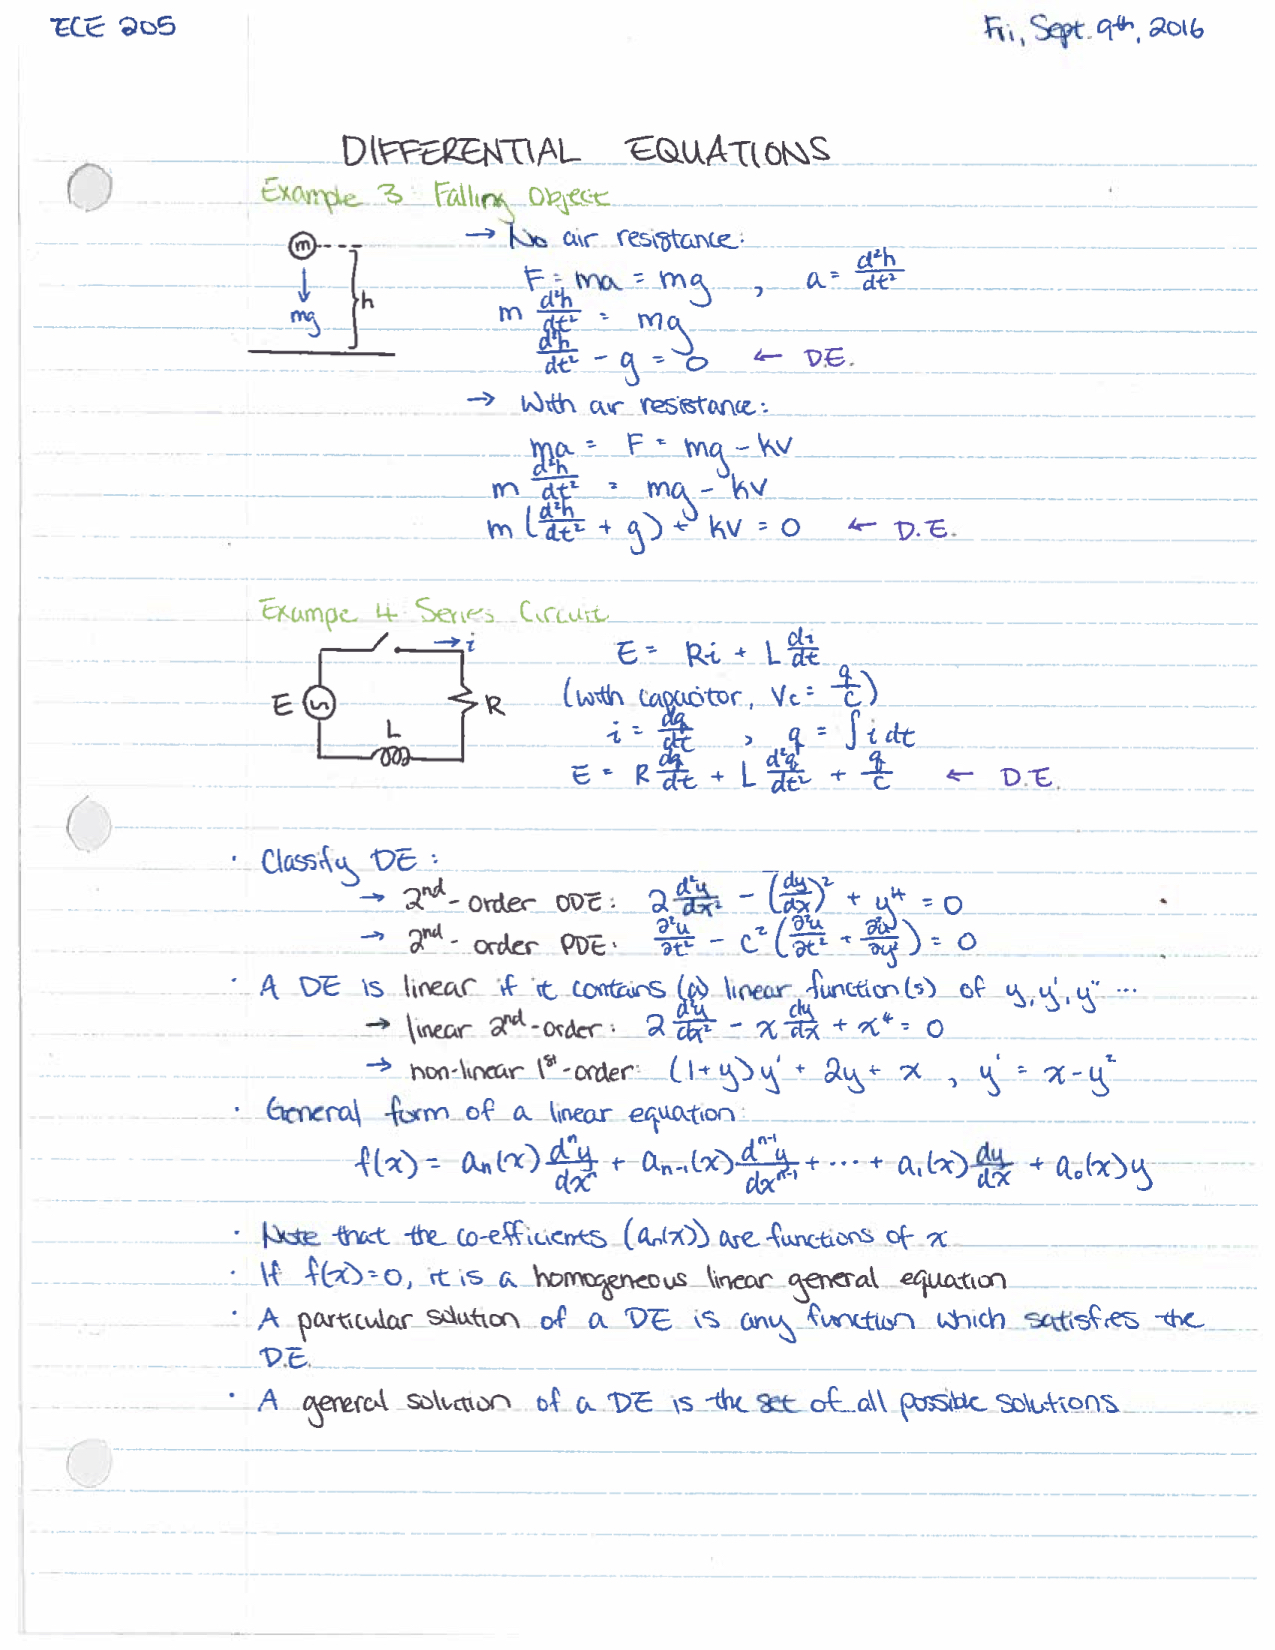 ECE 205
Fri, Sept. 9th, 2016
DIFFERENTIAL EQUATIONS
Example 3: Falling Object
→ No air resistance:
F = ma = mg , a = d²h/dt²
m d²h/dt² = mg
d²h/dt² - g = 0 ← D.E.
m
mg
h
→ With air resistance:
ma = F = mg - kv
m d²h/dt² = mg - kv
m (d²h/dt² + g) + kv = 0 ← D.E.
Exampe 4: Series Circuit
→ i
E
R
L
E = Ri + L di/dt
(with capacitor, Vc = q/c)
i = dq/dt , q = ∫ i dt
E = R dq/dt + L d²q/dt² + q/c ← D.E.
· Classify DE:
→ 2nd-order ODE: 2 d²y/dx² - (dy/dx)² + y⁴ = 0
→ 2nd-order PDE: ∂²u/∂t² - c² (∂²u/∂t² + ∂²u/∂y²) = 0
· A DE is linear if it contains (a) linear function(s) of y, y', y'' ...
→ linear 2nd-order: 2 d²y/dx² - x dy/dx + x⁴ = 0
→ non-linear 1st-order: (1+y)y' + 2y + x , y' = x - y²
· General form of a linear equation:
f(x) = aₙ(x) dⁿy/dxⁿ + aₙ₋₁(x) dⁿ⁻¹y/dxⁿ⁻¹ + ... + a₁(x) dy/dx + a₀(x)y
· Note that the co-efficients (aₙ(x)) are functions of x
· If f(x)=0, it is a homogeneous linear general equation
· A particular solution of a DE is any function which satisfies the
D.E.
· A general solution of a DE is the set of all possible solutions